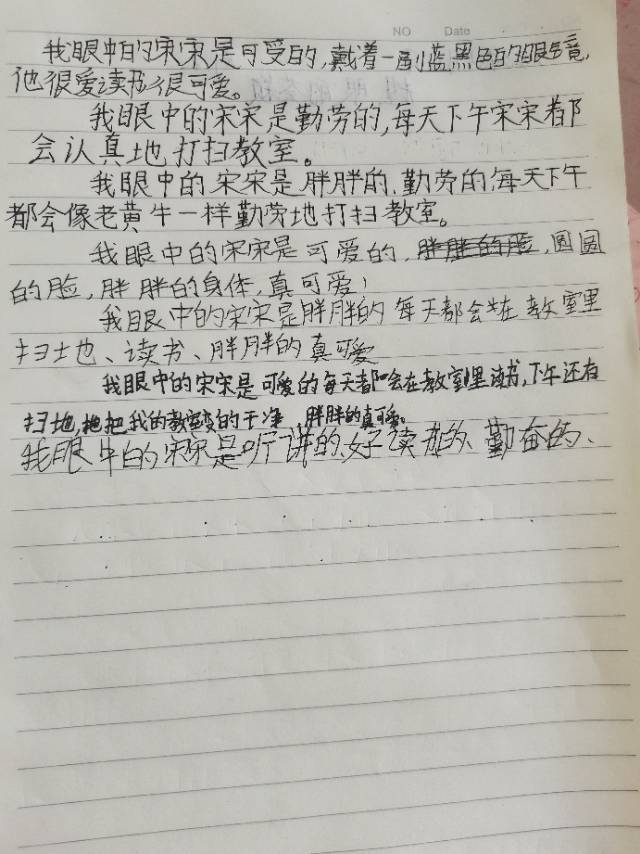 NO Date
我眼中的宋宋是可爱的,戴着一副蓝黑色的眼镜,
他很爱读书很可爱。
我眼中的宋宋是勤劳的,每天下午宋宋都
会认真地打扫教室。
我眼中的宋宋是胖胖的、勤劳的,每天下午
都会像老黄牛一样勤劳地打扫教室。
我眼中的宋宋是可爱的,胖胖的脸,圆圆
的脸,胖胖的身体,真可爱!
我眼中的宋宋是胖胖的每天都会在教室里
扫地、读书、胖胖的真可爱
我眼中的宋宋是可爱的每天都会在教室里读书,下午还有
扫地,拖把我的教室变的干净,胖胖的真可爱。
我眼中的宋宋是听讲的、好读书的、勤奋的、